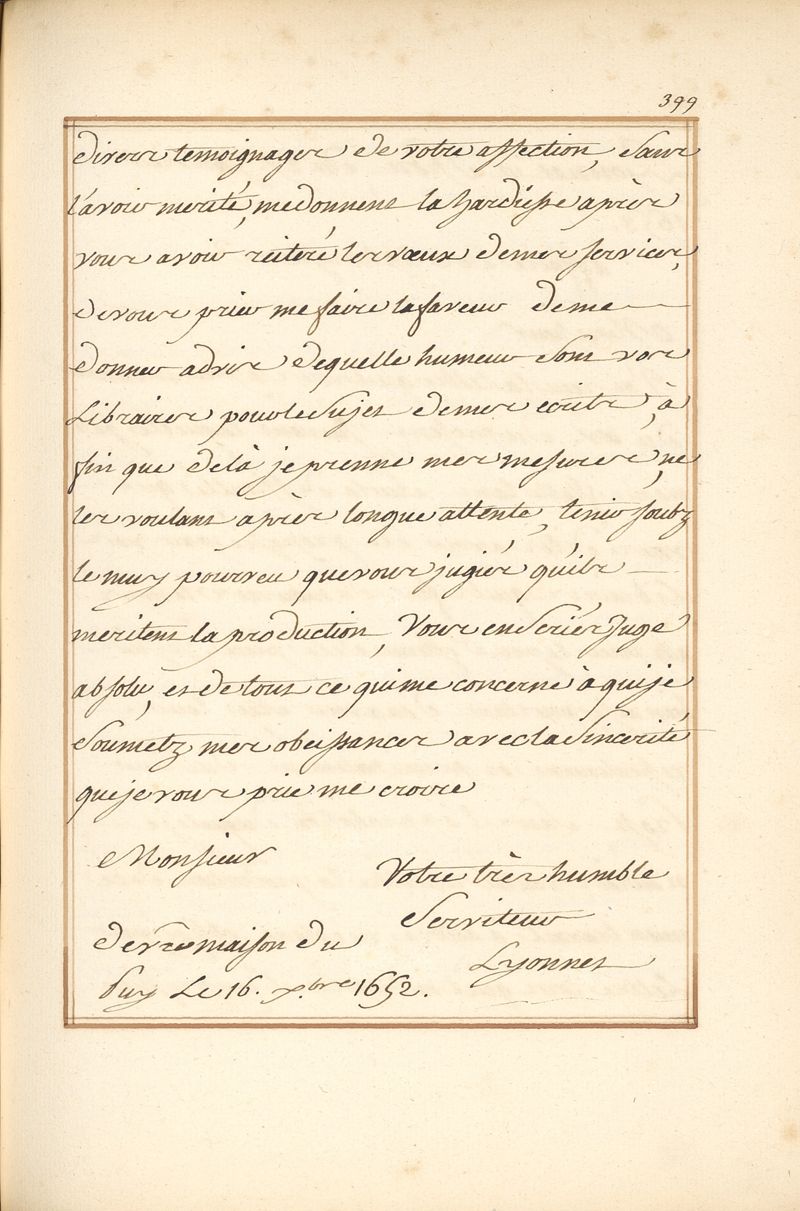 399
divers temoignages de votre affection, sans
l'avoir merité, me donnent la hardiesse après
vous avoir reiteré les vœux de mes services,
de vous prier me faire la faveur de me
donner advis de quelle humeur sont vos
Libraires pour le sujet de mes ecrits, à
fin que de là je prenne mes mesures, ne
les voulant après longue attente, tenir soubz
le muy pourveu que vous jugiés qu'ils
meritent la production, Vous en seriés Juge
absolu, et de tout ce qui me concerne à qui je
soumetz mes obeissances avec la sincerité
que je vous prie me croire
Monsieur
Votre très humble
Serviteur
Lyonnet
de vre maison du
Puy Le 16. xbre 1652.